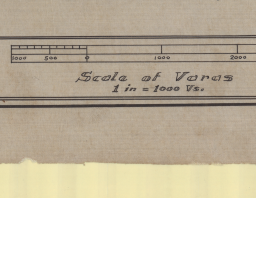 1000 500 0 1000 2000
Scale of Varas
1 in = 1000 Vs.